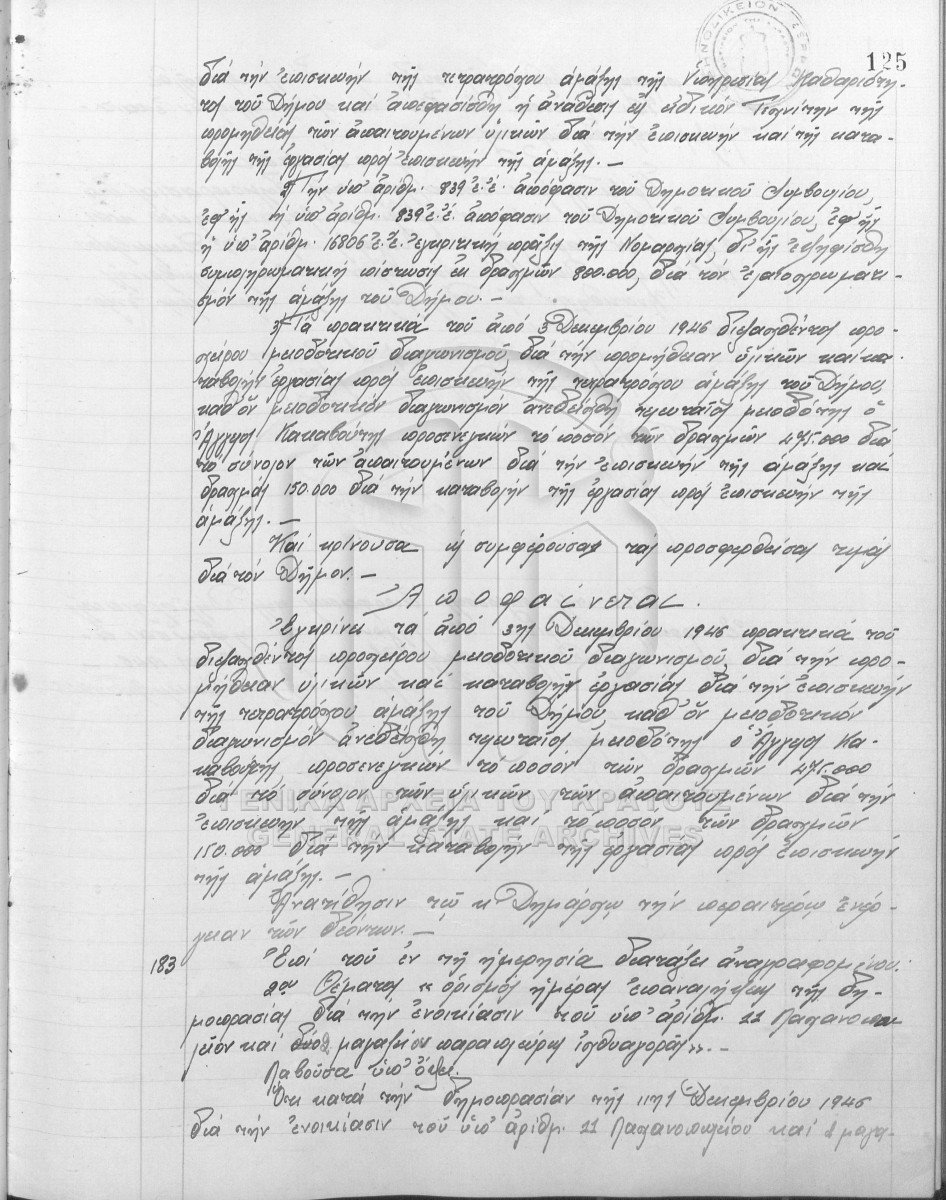 125
διά τήν ἐπισκευήν τῆς τετρατρόχου ἁμάξης τῆς Ὑπηρεσίας Καθαριότη-
τος τοῦ Δήμου καί ἀπεφασίσθη ἡ ἀνάθεσις εἰς εἰδικόν Τεχνίτην τῆς
προμηθείας τῶν ἀπαιτουμένων ὑλικῶν διά τήν ἐπισκευήν καί τῆς κατα-
βολῆς τῆς ἐργασίας πρός ἐπισκευήν τῆς ἁμάξης. —
2) Τήν ὑπ' ἀριθμ. 839 ἐ.ἔ. ἀπόφασιν τοῦ Δημοτικοῦ Συμβουλίου,
ἐφ' ἧς ἡ ὑπ' ἀριθμ. 839 ἐ.ἔ. ἀπόφασιν τοῦ Δημοτικοῦ Συμβουλίου, ἐφ' ἧς
ἡ ὑπ' ἀριθμ. 16806 ἐ.ἔ. ἐγκριτική πρᾶξις τῆς Νομαρχίας, δι' ἧς ἐψηφίσθη
συμπληρωματική πίστωσις ἐκ δραχμῶν 800.000, διά τόν ἐλαιοχρωματι-
σμόν τῆς ἁμάξης τοῦ Δήμου. —
3) Τά πρακτικά τοῦ ἀπό 3 Δεκεμβρίου 1946 διεξαχθέντος προ-
χείρου μειοδοτικοῦ διαγωνισμοῦ, διά τήν προμήθειαν ὑλικῶν καί κα-
ταβολήν ἐργασίας πρός ἐπισκευήν τῆς τετρατρόχου ἁμάξης τοῦ Δήμου,
καθ' ὅν μειοδοτικόν διαγωνισμόν ἀνεδείχθη τελευταῖος μειοδότης ὁ
Ἄγγελος Κακαβούτης προσενεγκών τό ποσόν τῶν δραχμῶν 475.000 διά
τό σύνολον τῶν ἀπαιτουμένων διά τήν ἐπισκευήν τῆς ἁμάξης καί
δραχμάς 150.000 διά τήν καταβολήν τῆς ἐργασίας πρός ἐπισκευήν τῆς
ἁμάξης. —
Καί κρίνουσα ὡς συμφερούσας τάς προσφερθείσας τιμάς
διά τόν Δῆμον. —
Ἀποφαίνεται.
Ἐγκρίνει τά ἀπό 3ης Δεκεμβρίου 1946 πρακτικά τοῦ
διεξαχθέντος προχείρου μειοδοτικοῦ διαγωνισμοῦ, διά τήν προ-
μήθειαν ὑλικῶν καί καταβολήν ἐργασίας διά τήν ἐπισκευήν
τῆς τετρατρόχου ἁμάξης τοῦ Δήμου, καθ' ὅν μειοδοτικόν
διαγωνισμόν ἀνεδείχθη τελευταῖος μειοδότης ὁ Ἄγγελος Κα-
καβούτης προσενεγκών τό ποσόν τῶν δραχμῶν 475.000
διά τό σύνολον τῶν ὑλικῶν τῶν ἀπαιτουμένων διά τήν
ἐπισκευήν τῆς ἁμάξης καί τό ποσόν τῶν δραχμῶν
150.000 διά τήν καταβολήν τῆς ἐργασίας πρός ἐπισκευήν
τῆς ἁμάξης. —
Ἀνατίθησιν τῷ κ. Δημάρχῳ τήν περαιτέρω ἐνέρ-
γειαν τῶν δεόντων. —
183 Ἐπί τοῦ ἐν τῇ ἡμερησίᾳ διατάξει ἀναγραφομένου
2ου Θέματος « ὁρισμός ἡμέρας ἐπαναλήψεως τῆς δη-
μοπρασίας διά τήν ἐνοικίασιν τοῦ ὑπ' ἀριθμ. 11 Λαχανοπω-
λείου καί μαγαζίων παραπλεύρως ἰχθυαγορᾶς». —
Λαβοῦσα ὑπ' ὄψει
Ὅτι κατά τήν δημοπρασίαν τῆς 11ης Δεκεμβρίου 1946
διά τήν ἐνοικίασιν τοῦ ὑπ' ἀριθμ. 11 Λαχανοπωλείου καί 2 μαγα-
ΓΕΝΙΚΑ ΑΡΧΕΙΑ ΤΟΥ ΚΡΑΤΟΥΣ
GENERAL STATE ARCHIVES